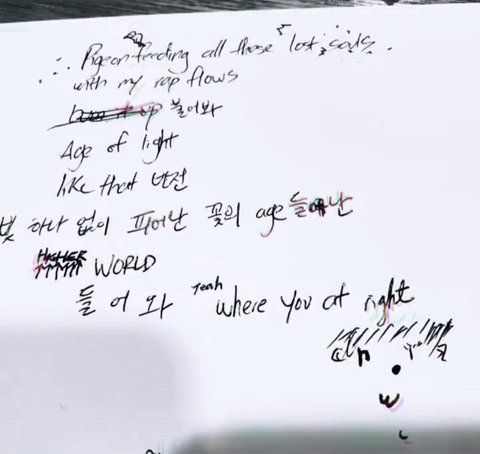 Pigeon feeding all those lost souls
with my rap flows
불어봐
Age of light
like that 반전
빛 하나 없이 피어난 꽃의 age 들어난
WORLD
들어와 Yeah where you at right